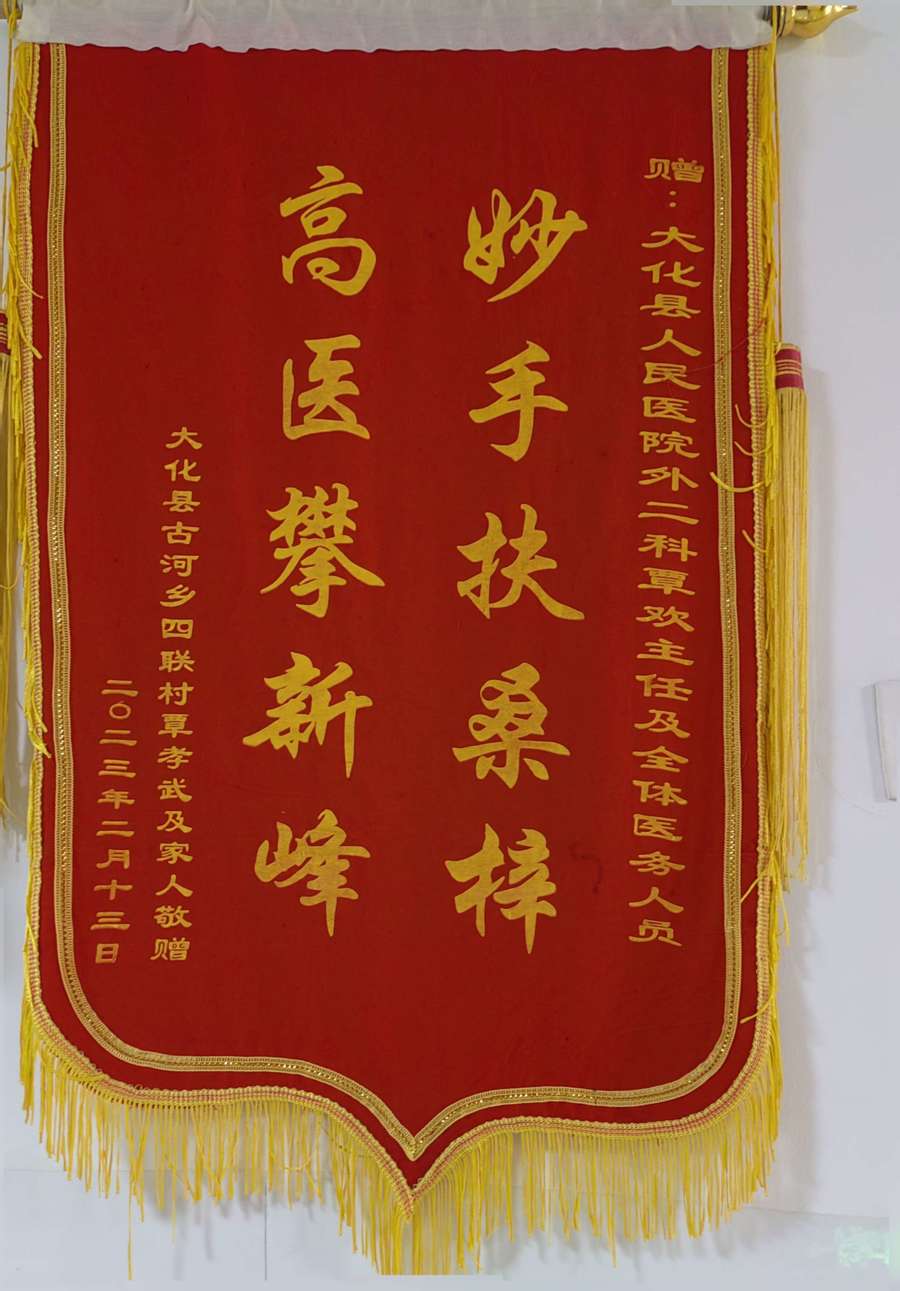 赠：大化县人民医院外二科覃欢主任及全体医务人员
妙手扶桑梓
高医攀新峰
大化县古河乡四联村覃孝武及家人敬赠
二〇二三年二月十三日